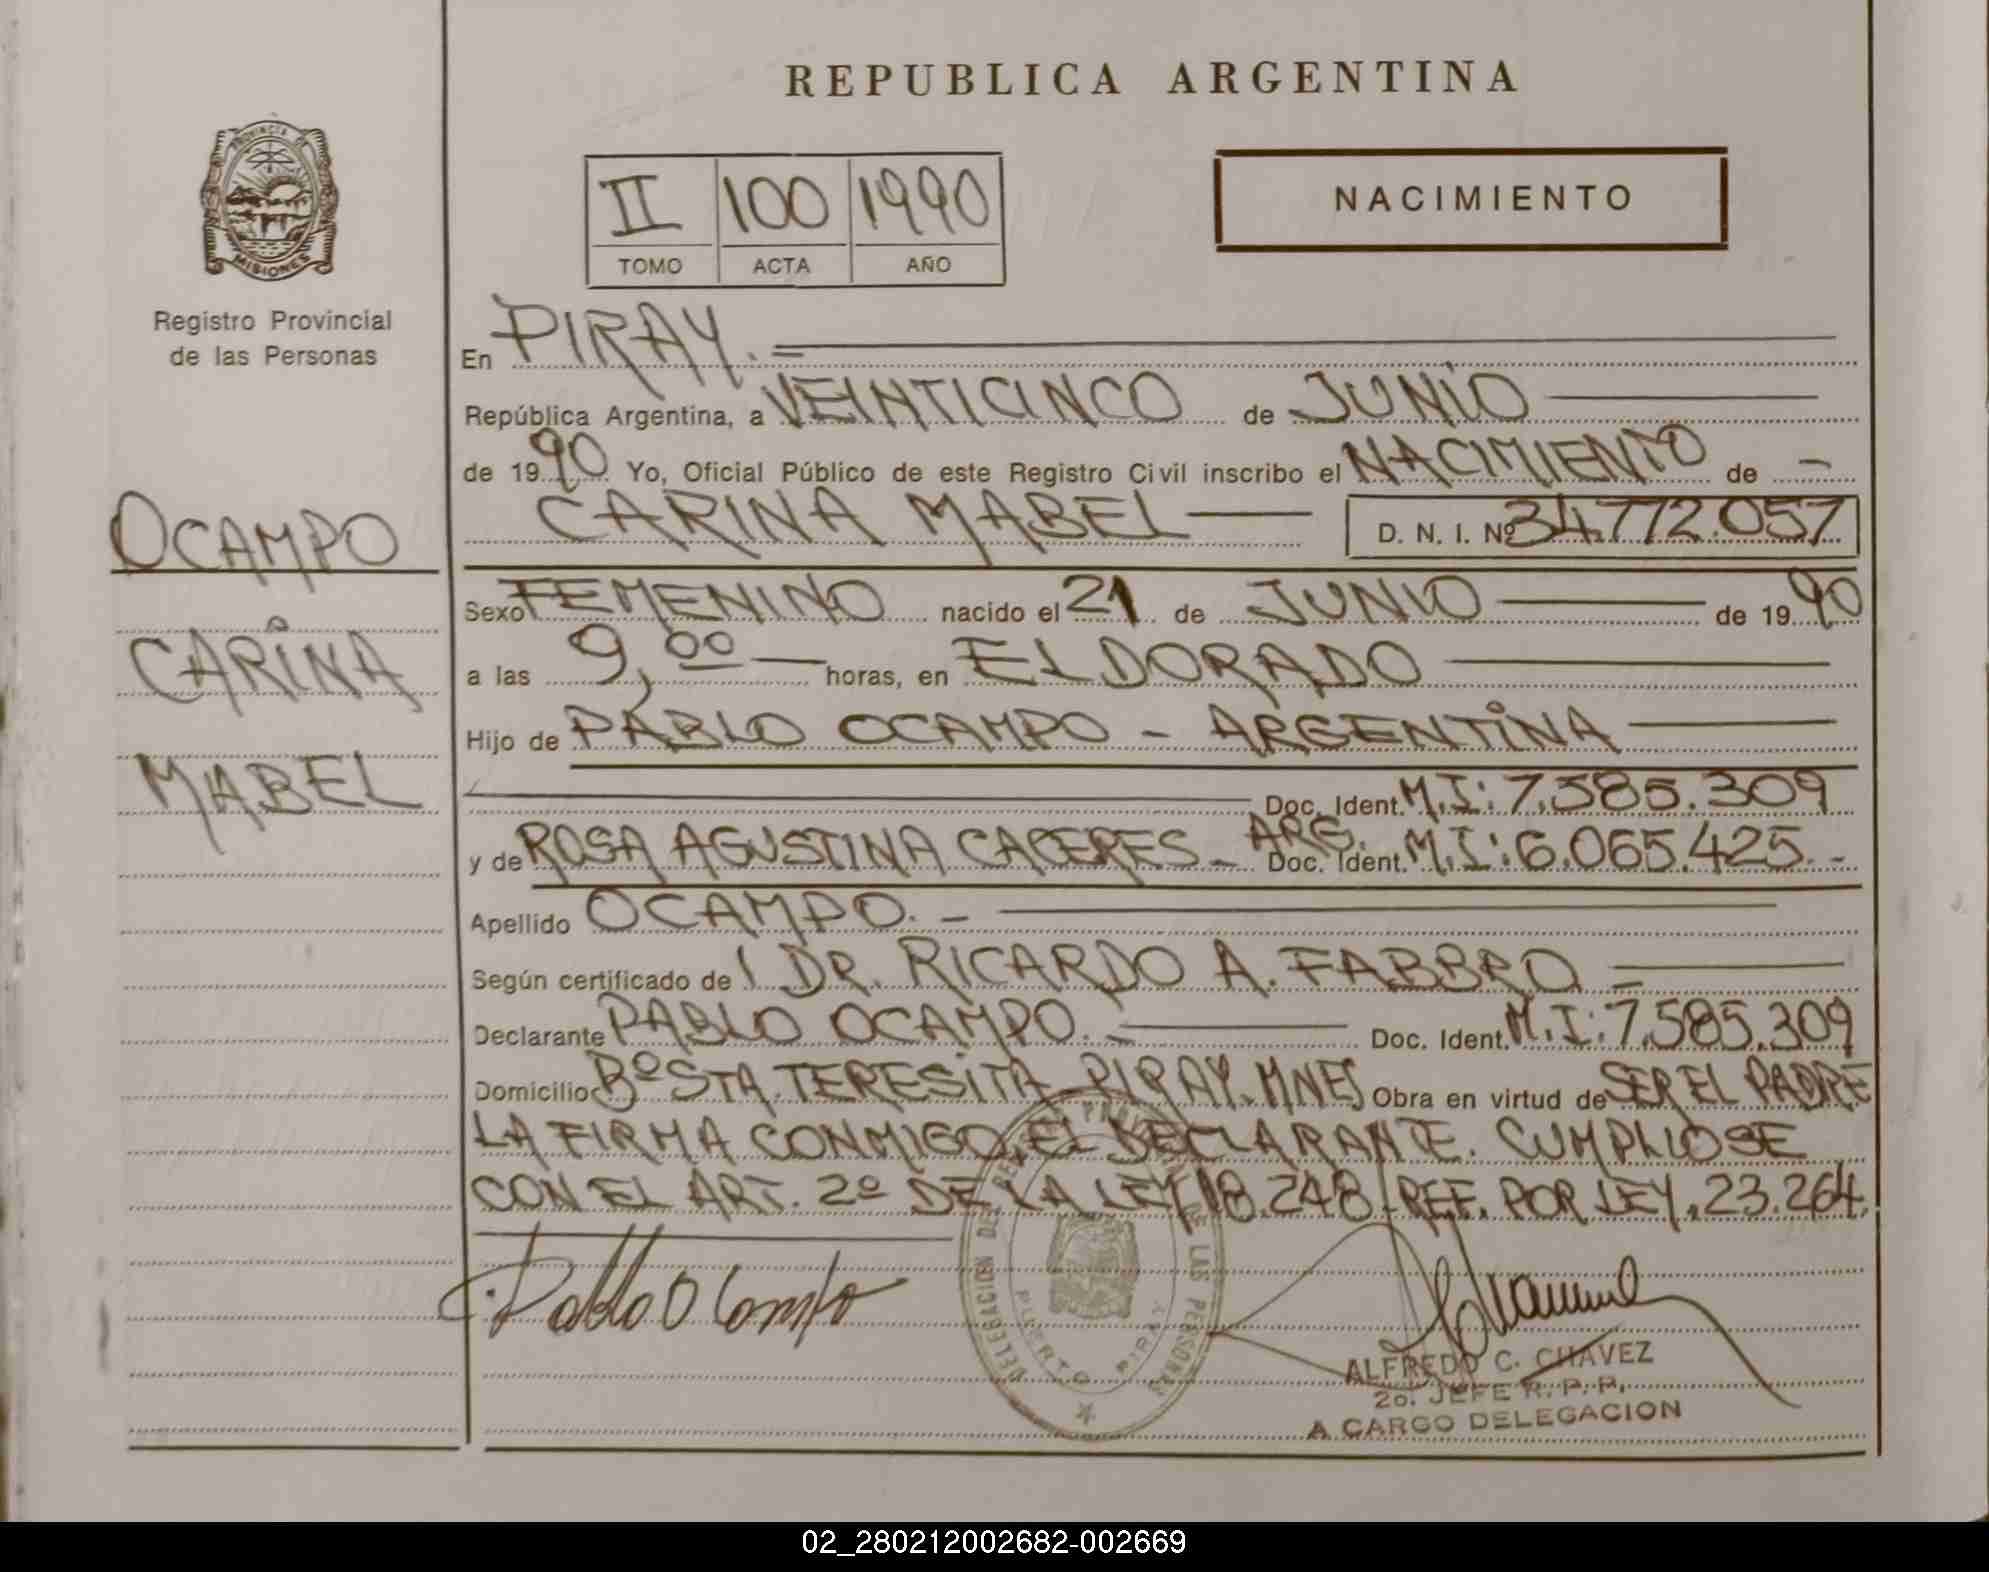 REPUBLICA ARGENTINA
PROVINCIA DE
MISIONES
Registro Provincial
de las Personas
OCAMPO
CARINA
MABEL
II 100 1990
TOMO ACTA AÑO
NACIMIENTO
En PIRAY.=
República Argentina, a VEINTICINCO de JUNIO
de 1990 Yo, Oficial Público de este Registro Civil inscribo el NACIMIENTO de -
CARINA MABEL D. N. I. Nº 34.772.057
Sexo FEMENINO nacido el 21 de JUNIO de 1990
a las 9,00 horas, en ELDORADO
Hijo de PABLO OCAMPO - ARGENTINA
Doc. Ident. M.I: 7.585.309
y de ROSA AGUSTINA CACERES - ARG. Doc. Ident. M.I: 6.065.425.-
Apellido OCAMPO.-
Según certificado de DR. RICARDO A. FABBRO
Declarante PABLO OCAMPO.- Doc. Ident. M.I: 7.585.309
Domicilio Bº STA. TERESITA PIRAY. MNES Obra en virtud de SER EL PADRE
LA FIRMA CONMIGO, EL DECLARANTE. CUMPLIOSE
CON EL ART. 2º DE LA LEY 18.248 REF. POR LEY. 23.264.
Pablo Ocampo
DELEGACION DEL REGISTRO PROVINCIAL DE LAS PERSONAS
PUERTO PIRAY
ALFREDO C. CHAVEZ
2o. JEFE R. P. P.
A CARGO DELEGACION
02_280212002682-002669